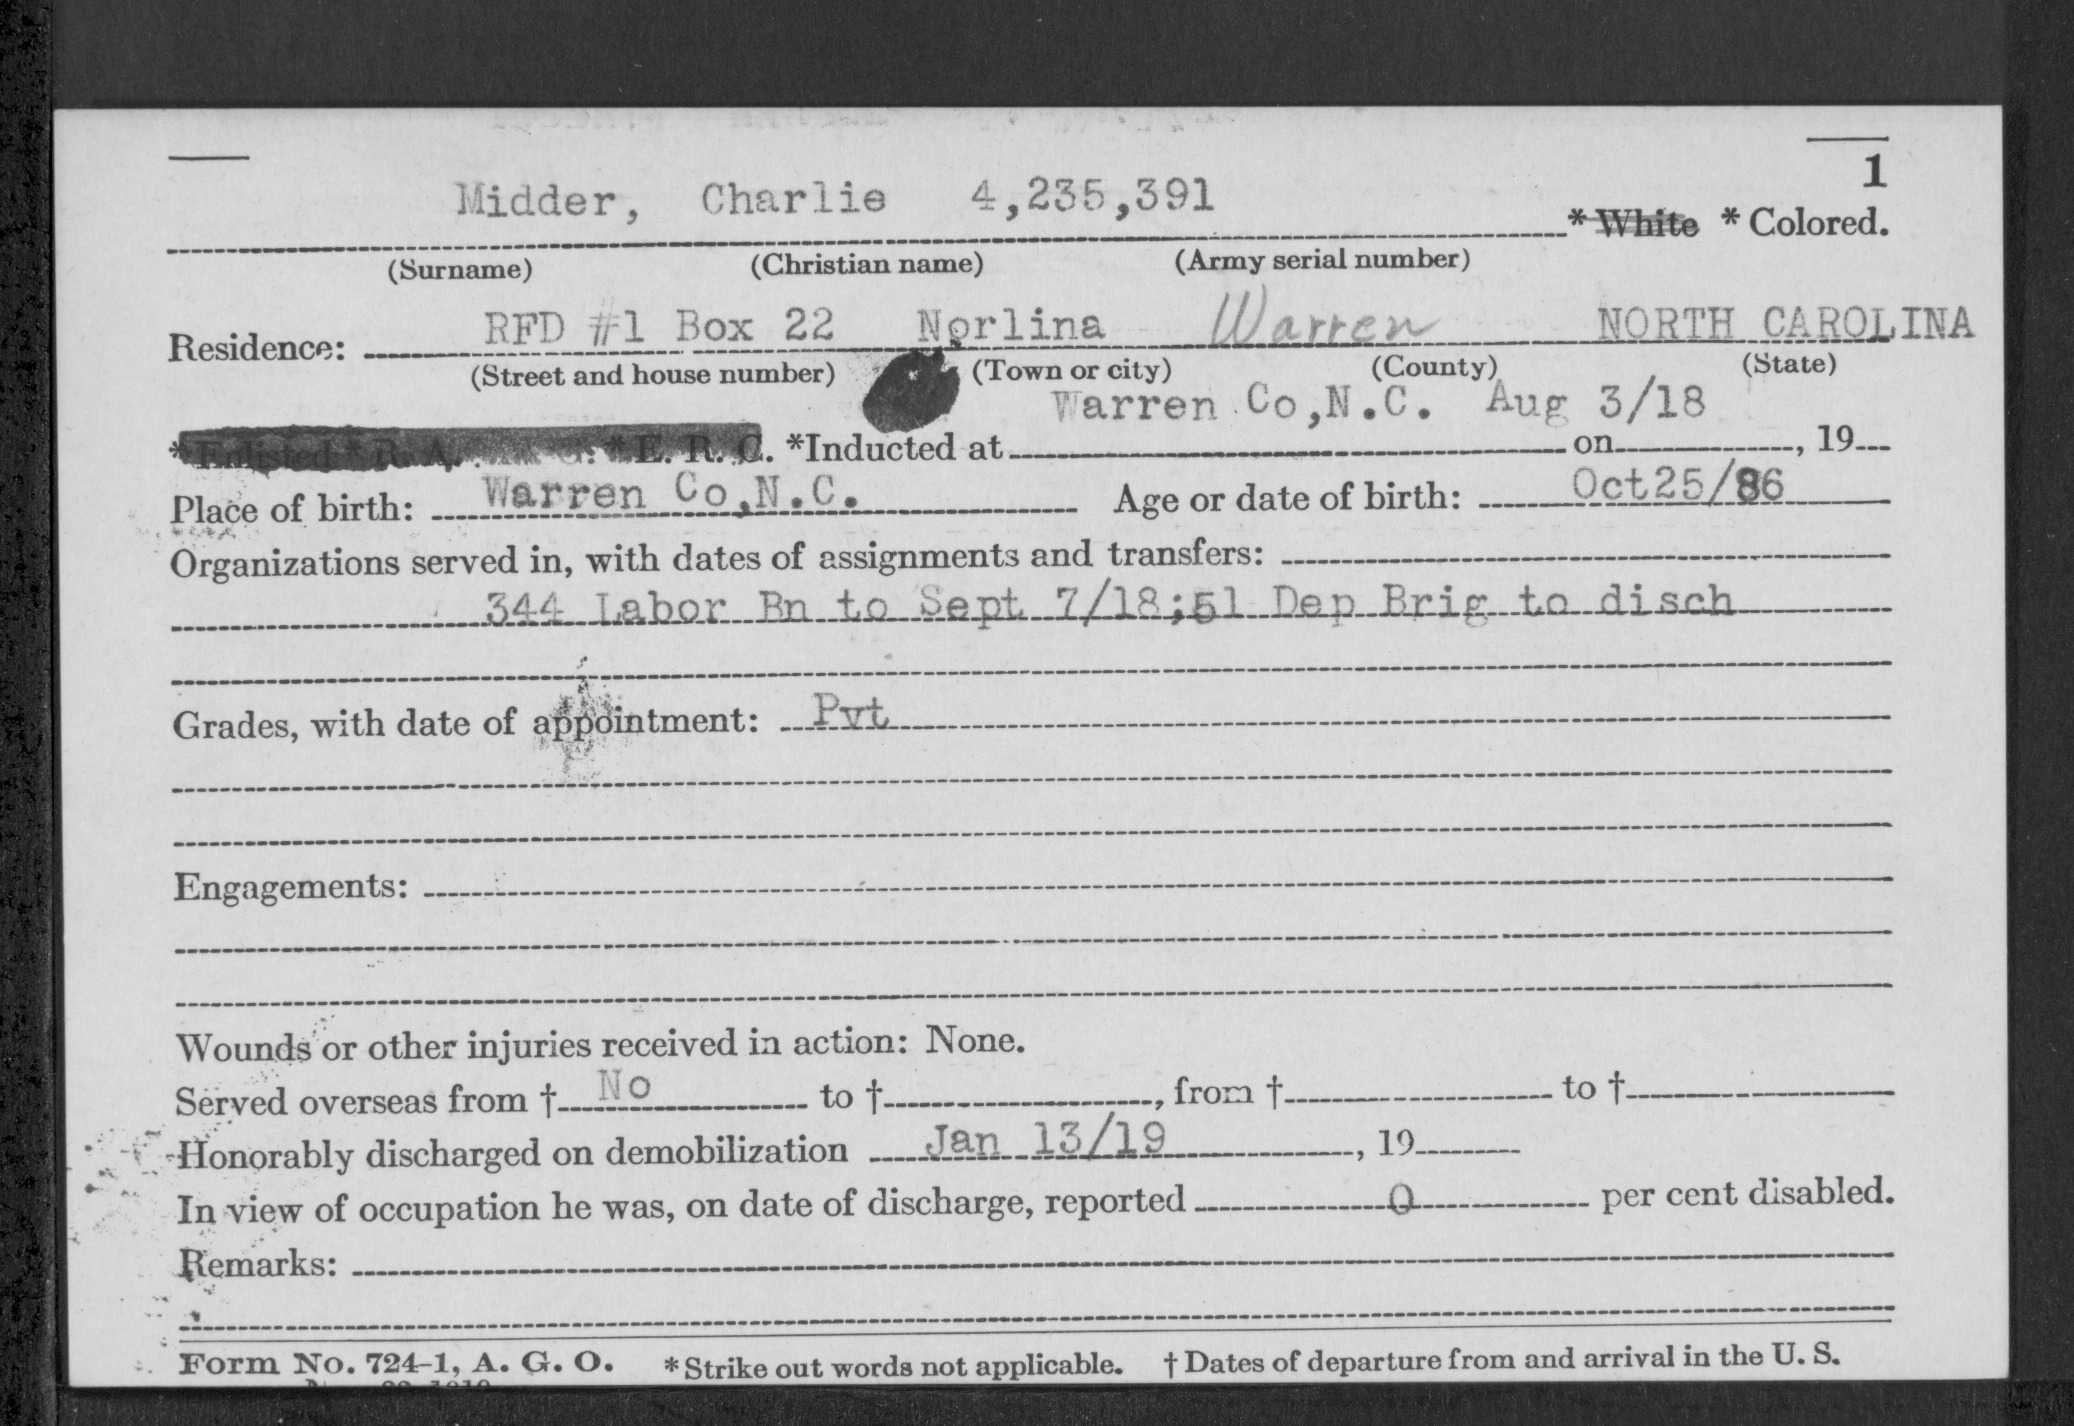 1
Midder, Charlie 4,235,391 * White * Colored.
(Surname) (Christian name) (Army serial number)
Residence: RFD #1 Box 22 Norlina Warren NORTH CAROLINA
(Street and house number) (Town or city) (County) (State)
Warren Co,N.C. Aug 3/18
*Enlisted * R. A. * E. R. C. *Inducted at on , 19
Place of birth: Warren Co,N.C. Age or date of birth: Oct25/86
Organizations served in, with dates of assignments and transfers:
344 Labor Bn to Sept 7/18;51 Dep Brig to disch
Grades, with date of appointment: Pvt
Engagements:
Wounds or other injuries received in action: None.
Served overseas from † No to † , from † to †
Honorably discharged on demobilization Jan 13/19 , 19
In view of occupation he was, on date of discharge, reported 0 per cent disabled.
Remarks:
Form No. 724-1, A. G. O. * Strike out words not applicable. † Dates of departure from and arrival in the U. S.